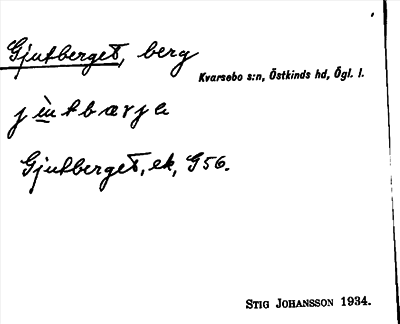 Gjutberget, berg
Kvarsebo s:n, Östkinds hd, Ögl. l.
Gjutberget, ek, G56.
STIG JOHANSSON 1934.